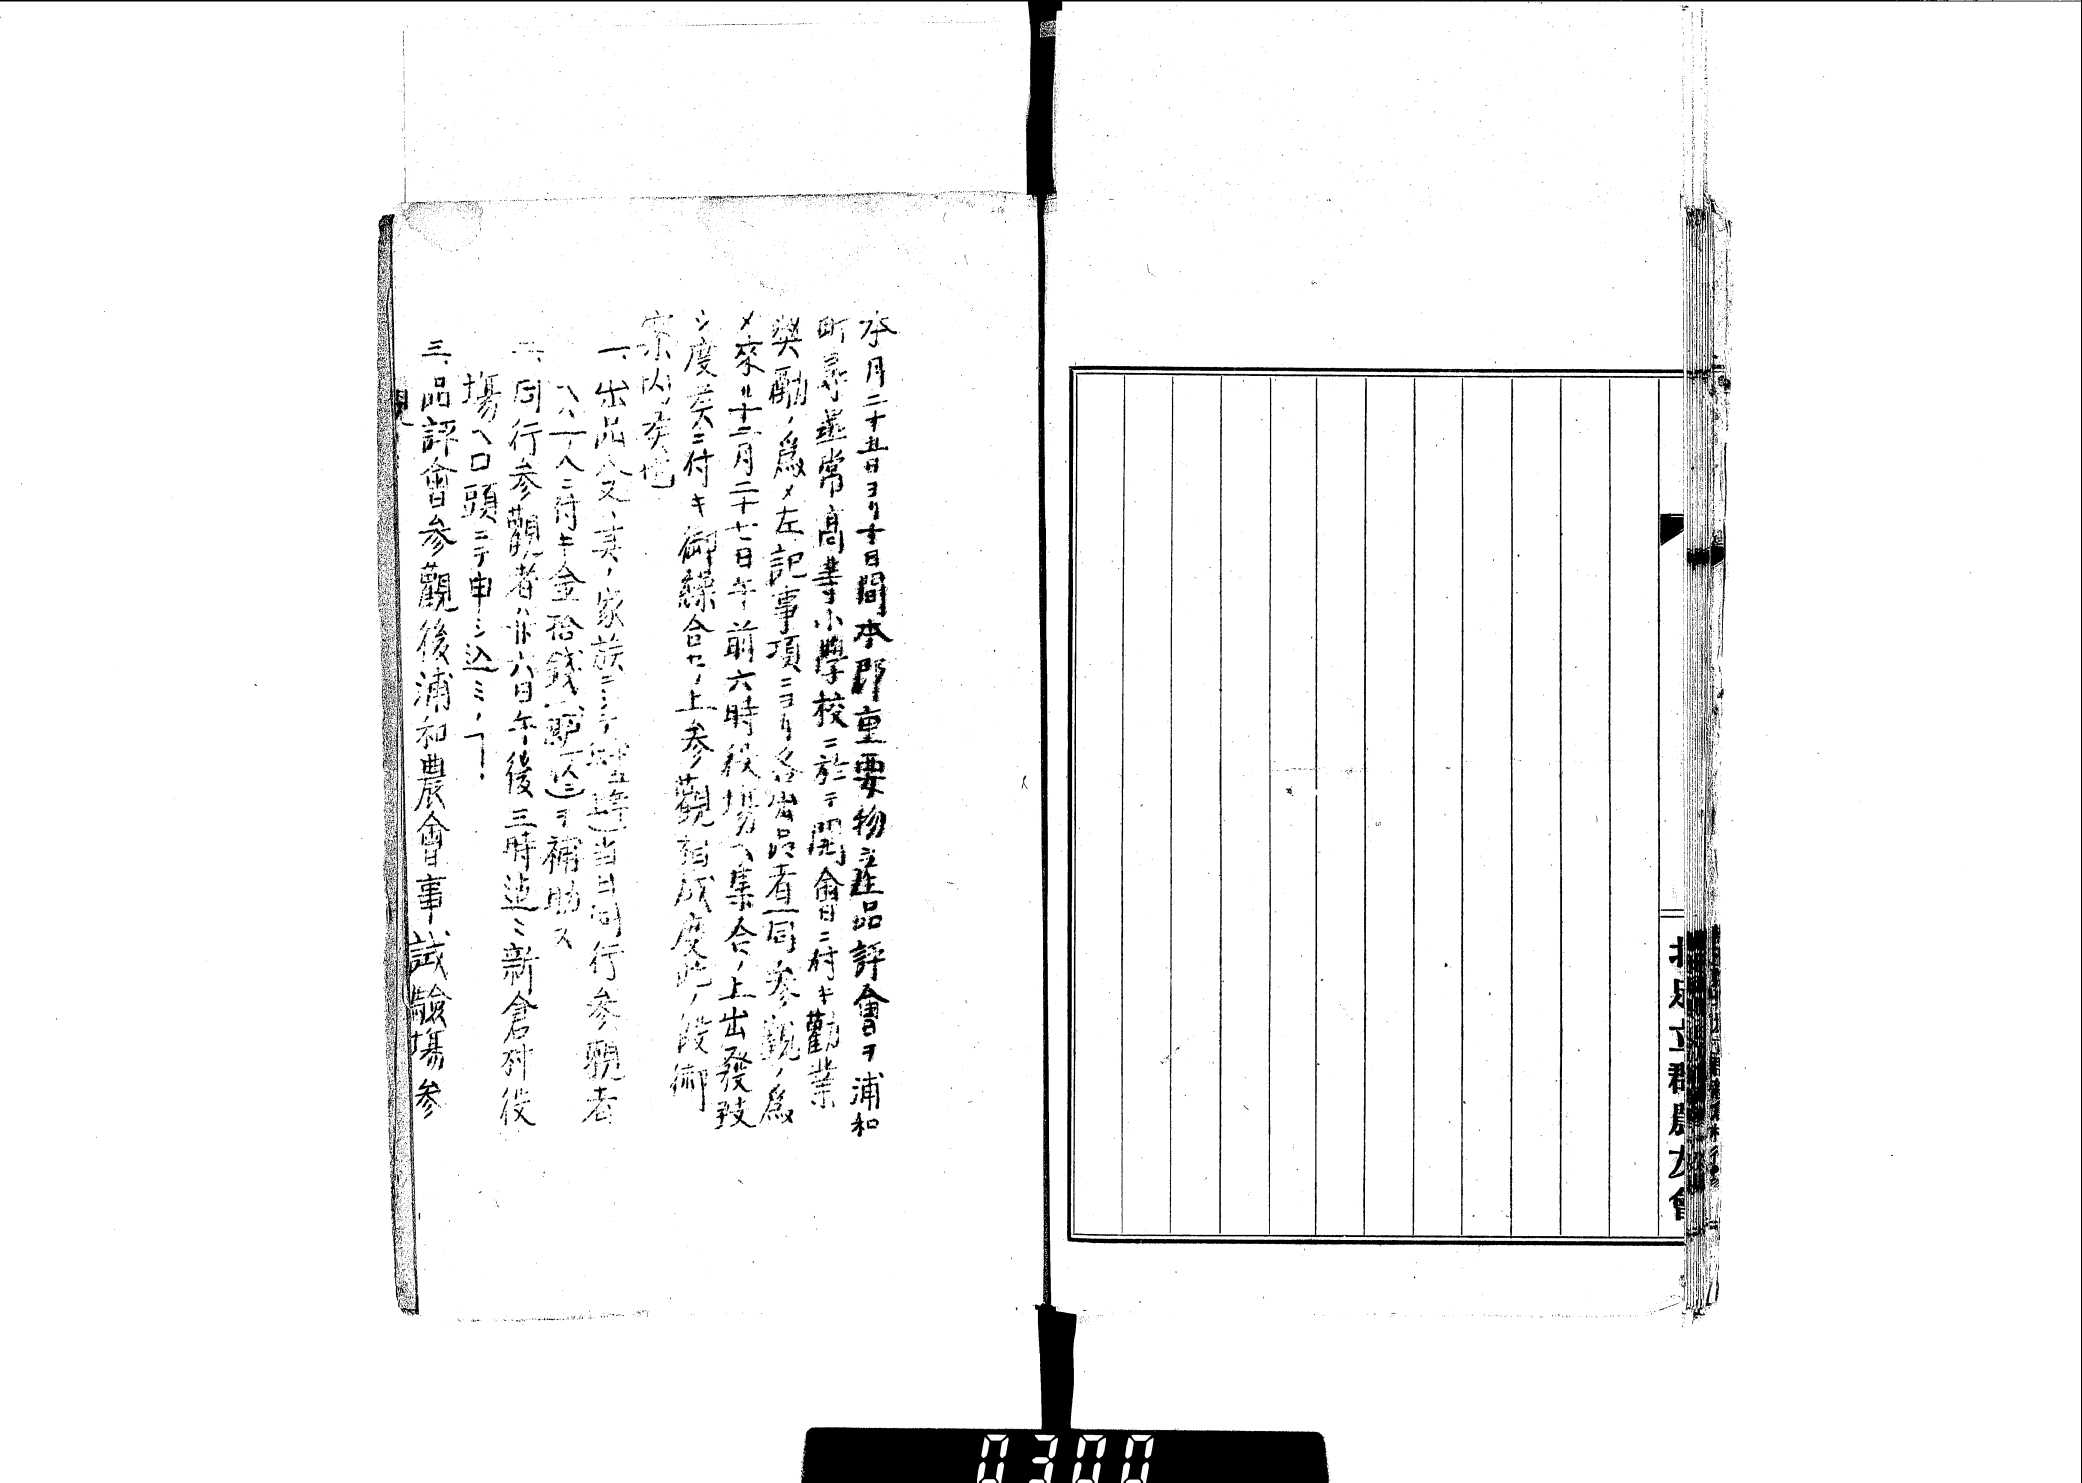 北足立郡農友會
本月二十五日ヨリ十日間本郡重要物産品評會ヲ浦和
町尋常高等小學校ニ於テ開會ニ付キ勸業
奬勵ノ爲メ左記事項ニヨリ各出品者一同参観ノ爲
メ來ル十二月二十七日午前六時役場ヘ集合ノ上出發致
シ度候ニ付キ御繰合セノ上参觀相成度此ノ段御
案内候也
一、出品人又ハ其ノ家族ニシテ 当日同行参観者
ヘハ一人ニ付キ金拾錢 ヲ補助ス
二、同行参觀者ハ廿六日午後三時迠ニ新倉村役
場ヘ口頭ニテ申シ込ミノヿ
三、品評會参觀後浦和農會事試驗場参
観
0300